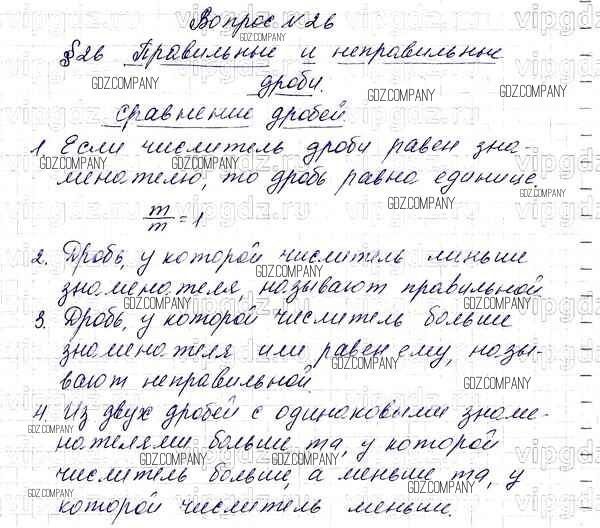 Вопрос №26
§26 Правильные и неправильные
дроби.
Сравнение дробей.
1. Если числитель дроби равен зна-
менателю, то дробь равна единице.
m/m = 1
2. Дробь, у которой числитель меньше
знаменателя, называют правильной
3. Дробь, у которой числитель больше
знаменателя или равен ему, назы-
вают неправильной.
4. Из двух дробей с одинаковыми знаме-
нателями больше та, у которой
числитель больше, а меньше та, у
которой числитель меньше.
GDZ.COMPANY
vipgdz.ru